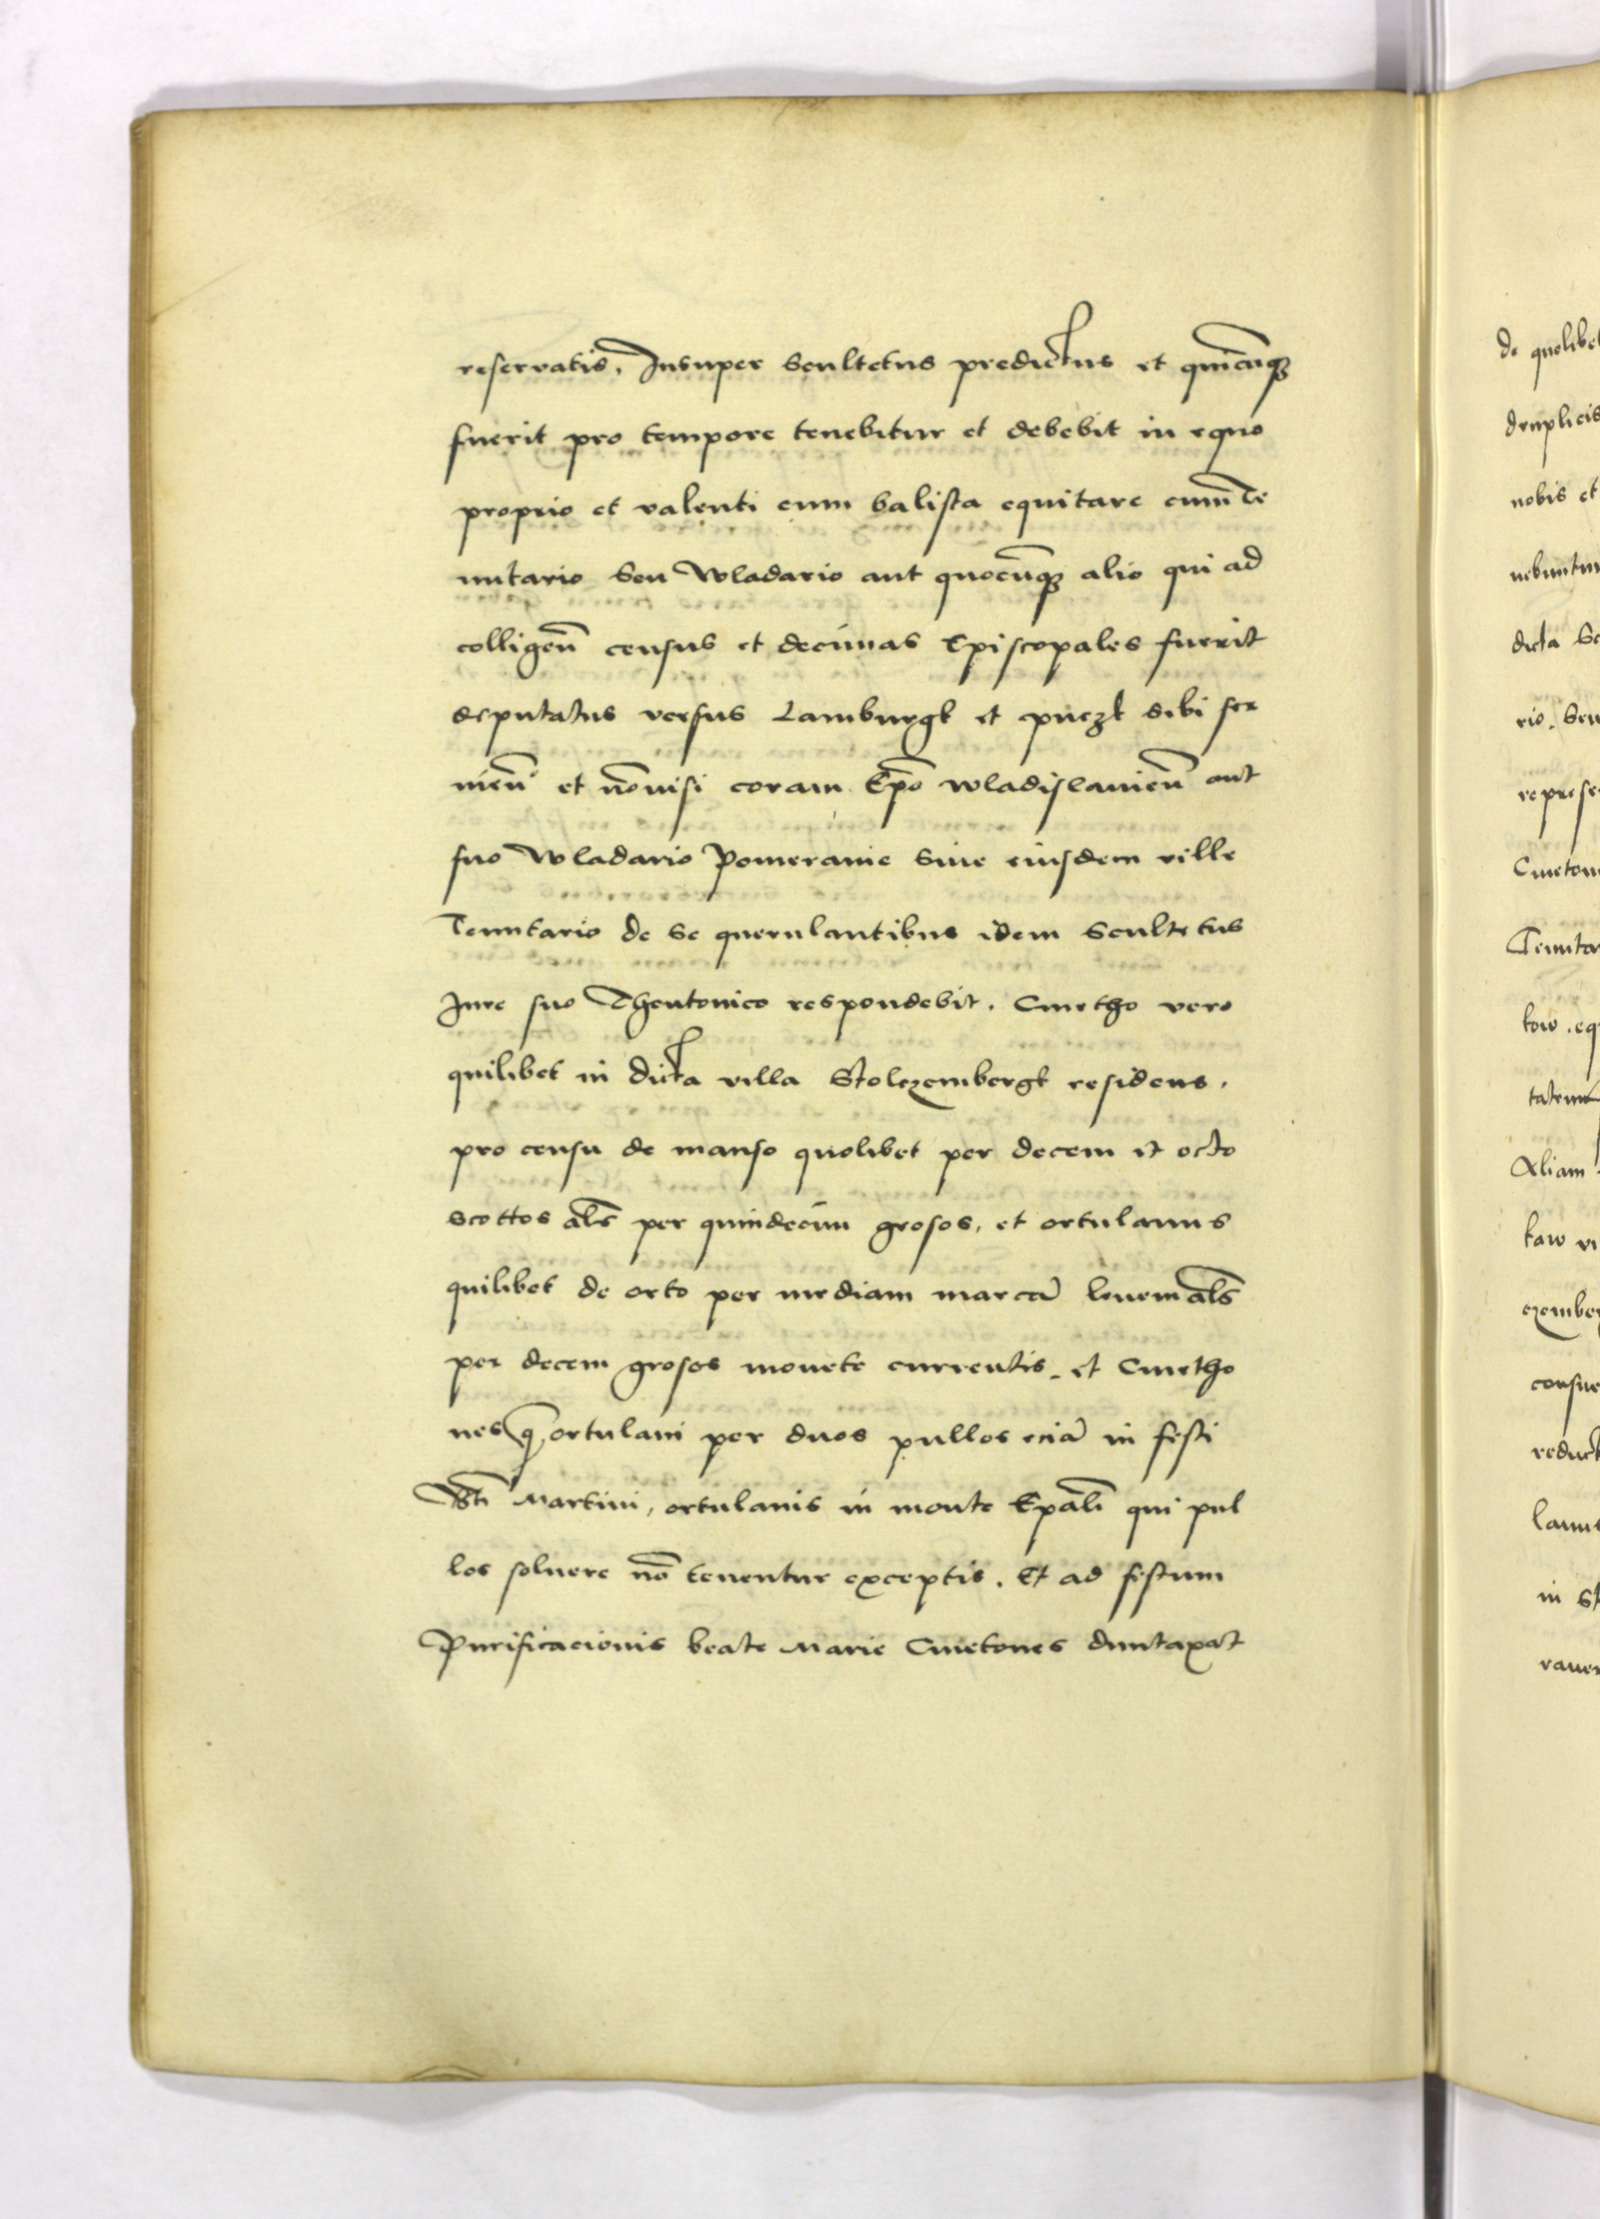 reservatis. Insuper Scultetus predictus et quicu̅qꝫ
fuerit pro tempore tenebitur et debebit in equo
proprio et valenti cum balista equitare cum Te
nutario Seu Wladario aut quocu̅qꝫ alio qui ad
colligen̅ census et decimas Episcopales fuerit
deputatus versus Lamburgk et puczk sibi ser
uien̅ et no̅nisi coram Ep̅o Wladislauien̅ aut
suo Wladario Pomeranie Siue eiusdem ville
Tenutario de se querulantibus idem Scultetus
Jure suo Theutonico respondebit. Cmetho vero
quilibet in dicta villa Stolczembergk residens.
pro censu de manso quolibet per decem et octo
scottos al̅s per quindecim grosos, et ortulanus
quilibet de orto per mediam marca̅ leuem al̅s
per decem grosos monete currentis. et Cmetho
nes q̅ ortulani per duos pullos ecia̅ in festi
Sti̅ Martini, ortulanis in monte Ep̅ali qui pul
los soluere no̅ tenentur exceptis. Et ad festum
Purificacionis beate Marie Cmetones duntaxat
de quolibet
druplicis
nobis et
nebuntur
dicta Sc
rio. Seu
represe
Cmeton
Tenutar
kow. eq
tatem
Aliam
kow vi
czember
consue
reduct
lanus
in St
rauer